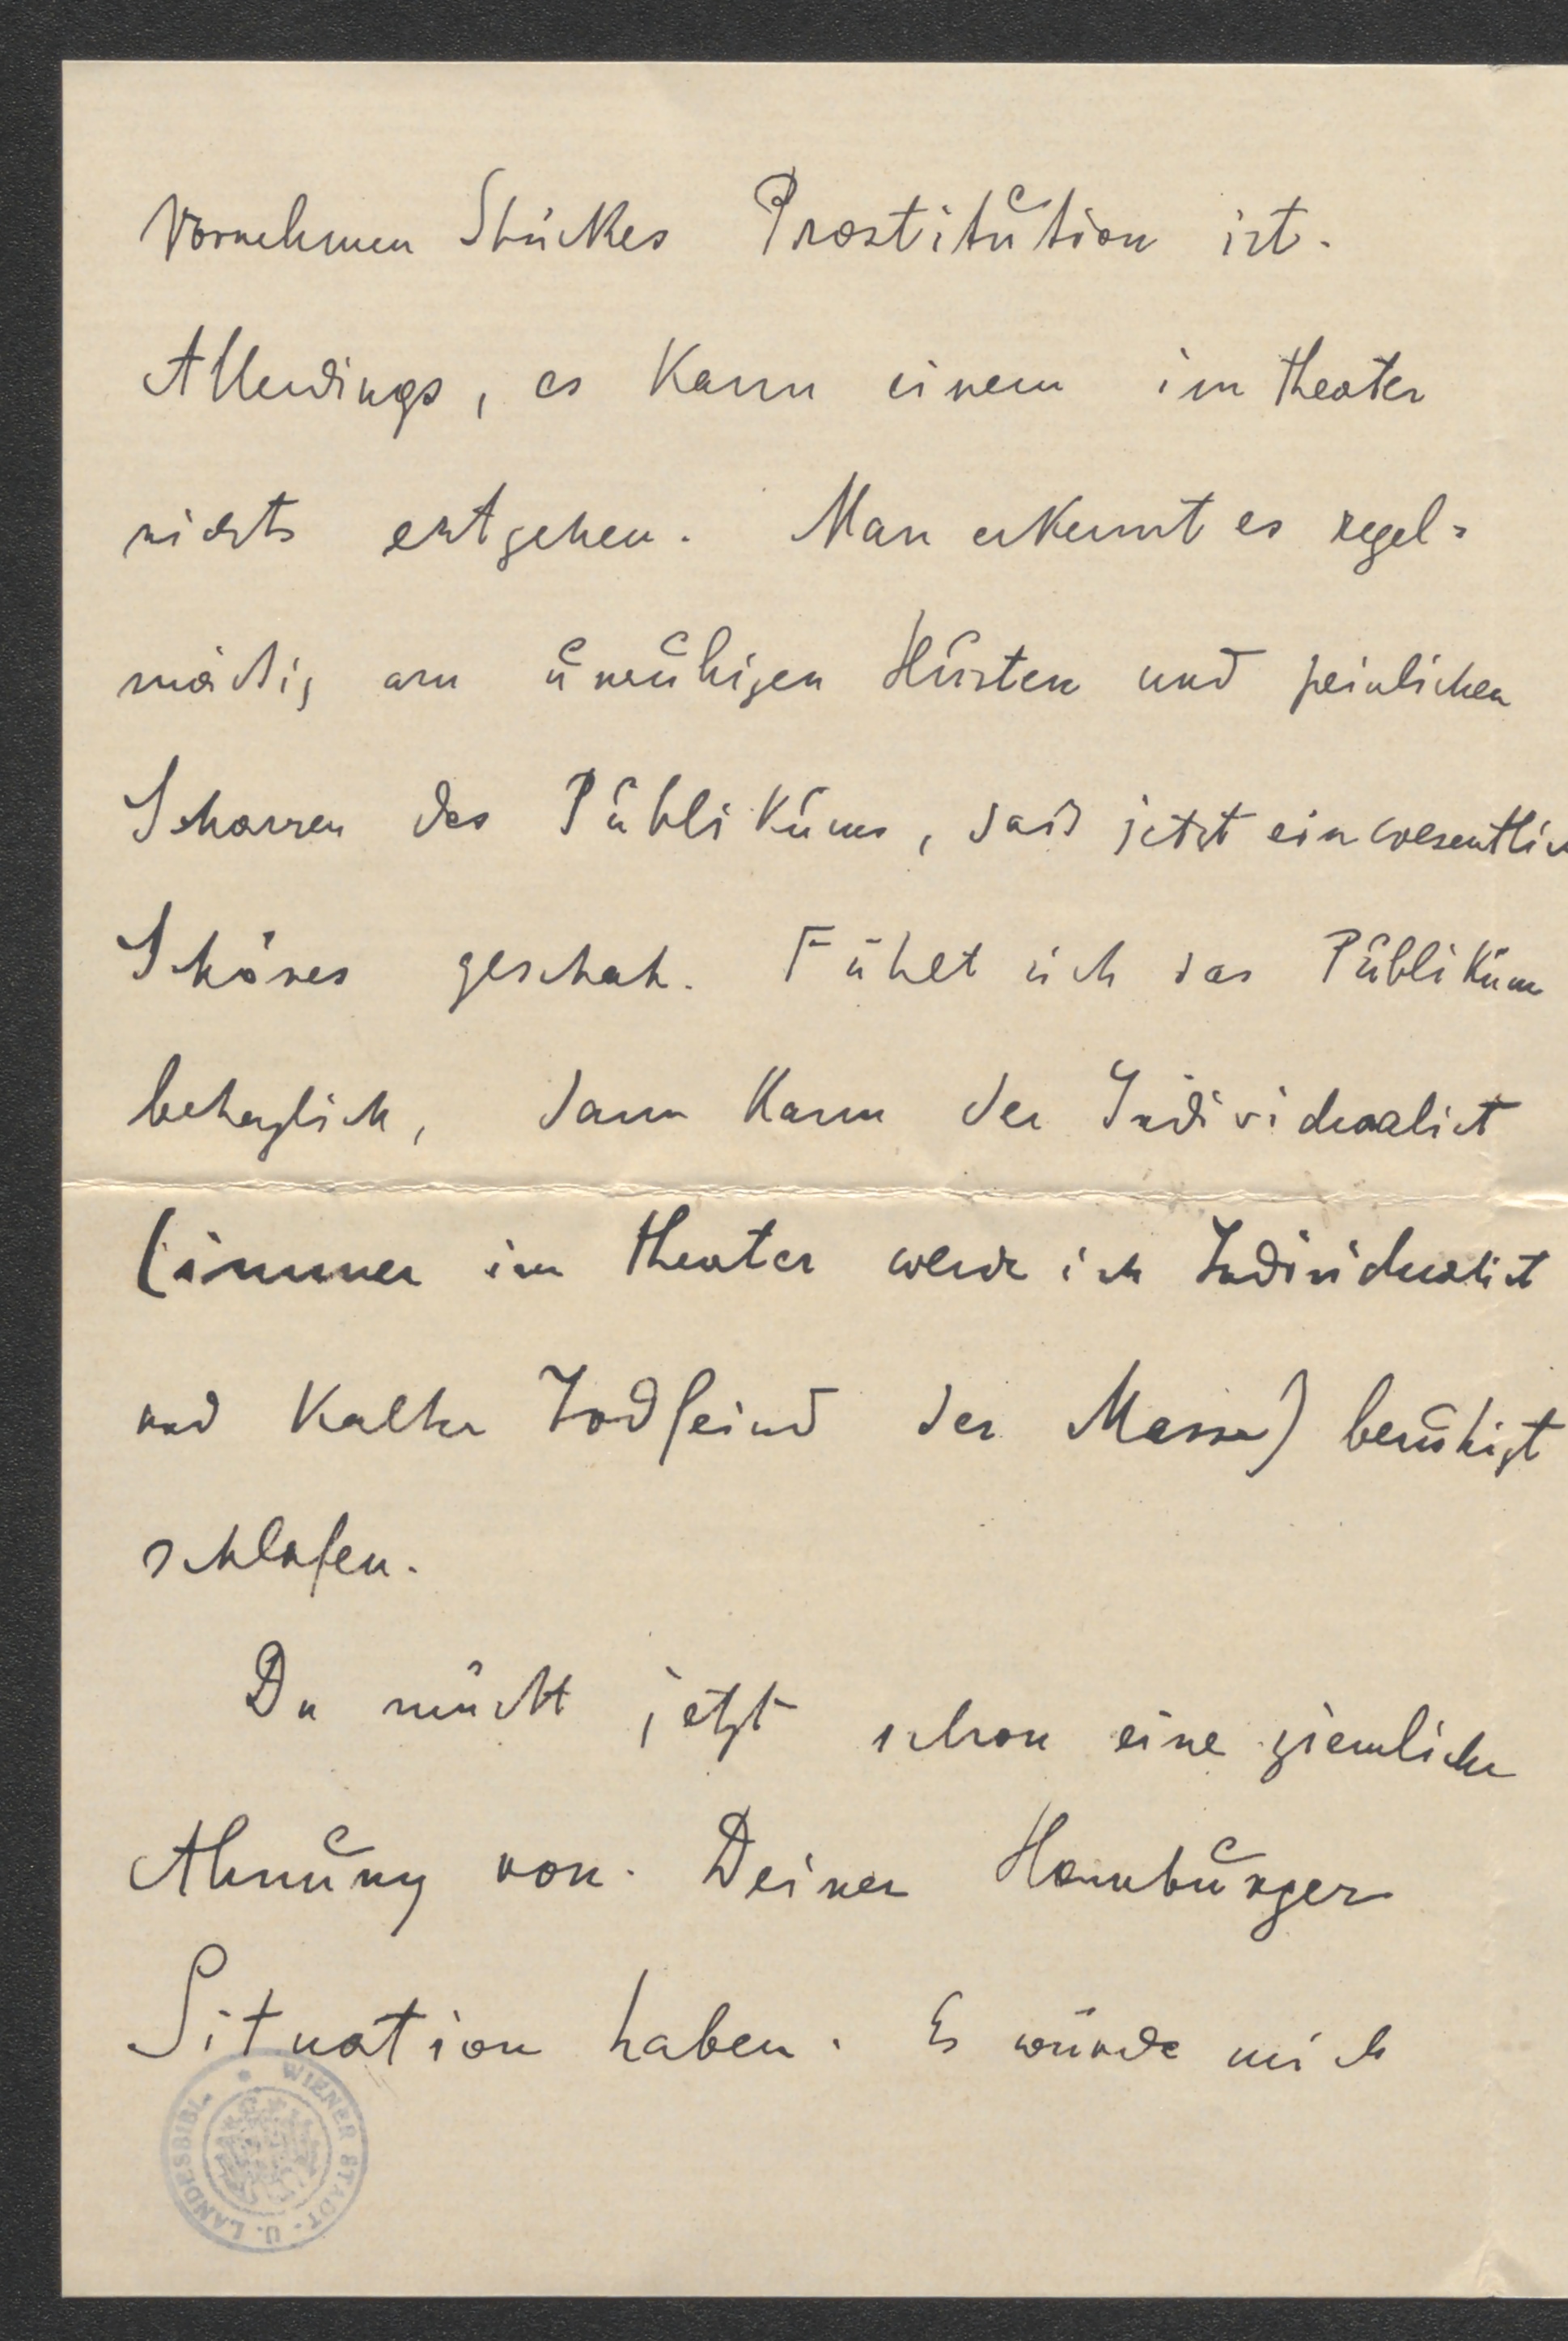 vornehmen Stückes Prostitution ist.
Allerdings, es kann einem im Theater
nichts entgehen. Man erkennt es regel=
mäßig am unruhigen Husten und peinlichen
Scharren des Publikums, daß jetzt ein wesentlich
Schönes geschah. Fühlt sich das Publikum
behaglich, dann kann der Individualist
(immer im Theater werde ich Individualist
und kalter Todfeind der Masse) beruhigt
schlafen.
Du müßt jetzt schon eine ziemliche
Ahnung von Deiner Hamburger
Situation haben. Es würde mich
WIENER STADT- U. LANDESBIBL.